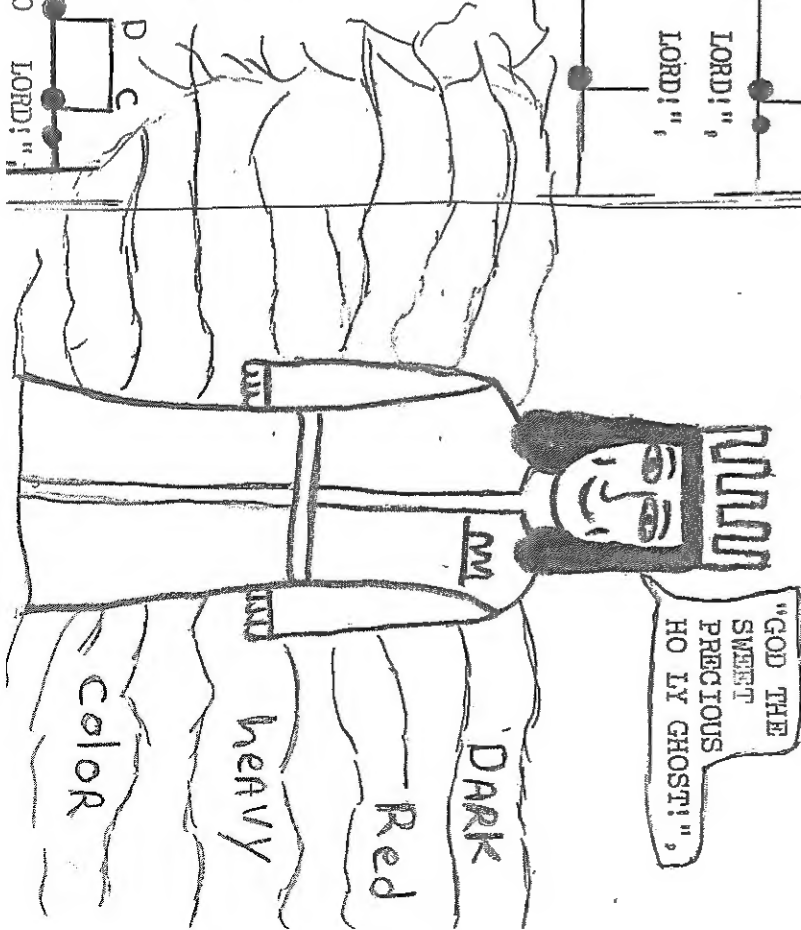 LORD!",
LORD!",
"GOD THE
SWEET
PRECIOUS
HO LY GHOST!",
DARK
Red
heavy
color
D C
LORD!",